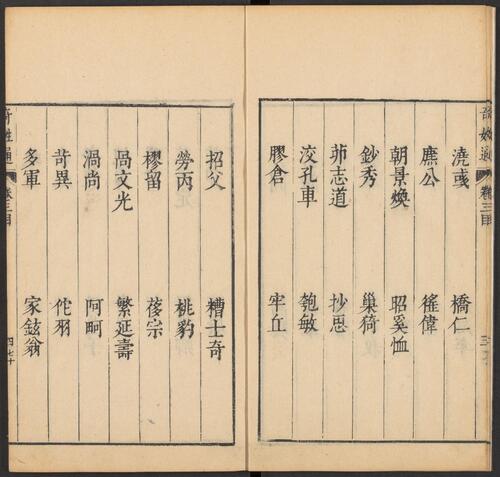 奇姓通 卷三目
澆彧 橋仁
麃公 徭偉
朝景煥 昭奚恤
鈔秀 巢猗
茆志道 抄思
洨孔車 匏敏
膠倉 牢丘
招父 糟士奇
勞丙 桃豹
樛留 蓚宗
咼文光 繁延壽
渦尚 阿
苛異 佗羽
多軍 家鉉翁
奇姓通 卷三目